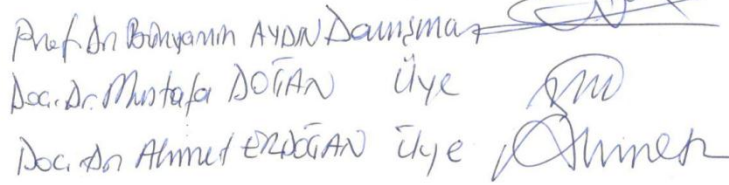 Prof. Dr. Bünyamin AYDIN Danışman
Doç. Dr. Mustafa DOĞAN Üye
Doç. Dr. Ahmet ERDOĞAN Üye Ahmet